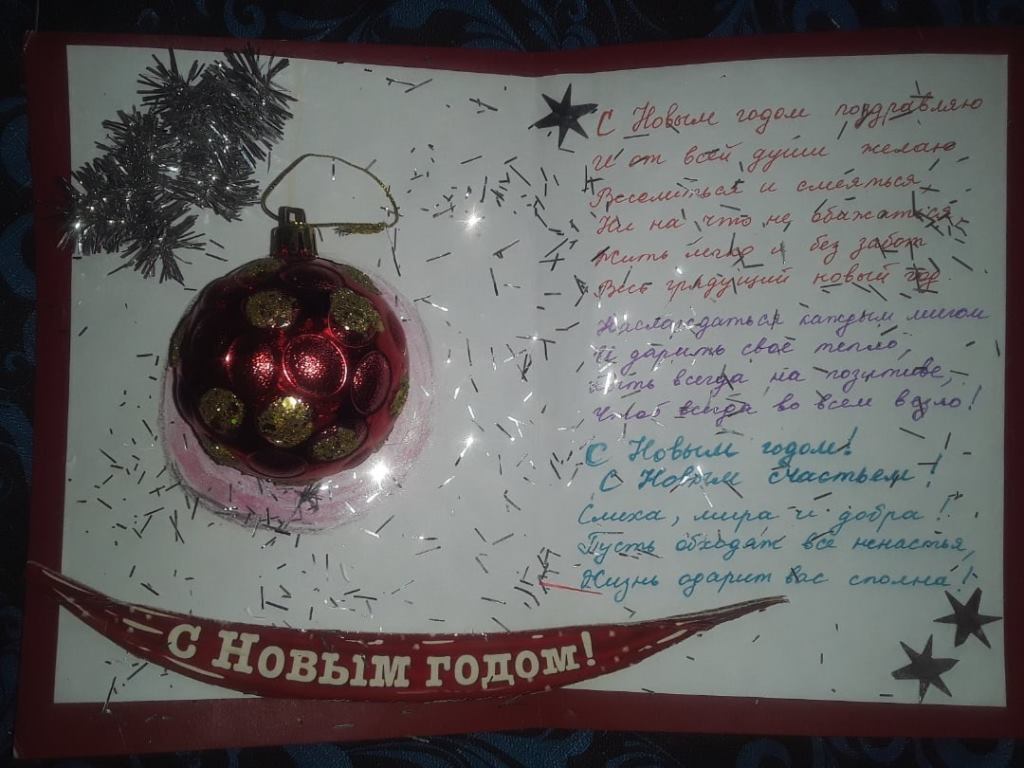 С Новым годом поздравляю
И от всей души желаю
Веселиться и смеяться,
Ни на что не обажаться
Жить легко и без забот
Весь грядущий новый год.
Наслаждаться каждым мигом
И дарить своё тепло,
Быть всегда на позитиве,
Чтоб всегда во всем везло!
С Новым годом!
С Новым Счастьем!
Смеха, мира и добра!
Пусть обходят все ненастья,
Жизнь одарит вас сполна!
С Новым годом!